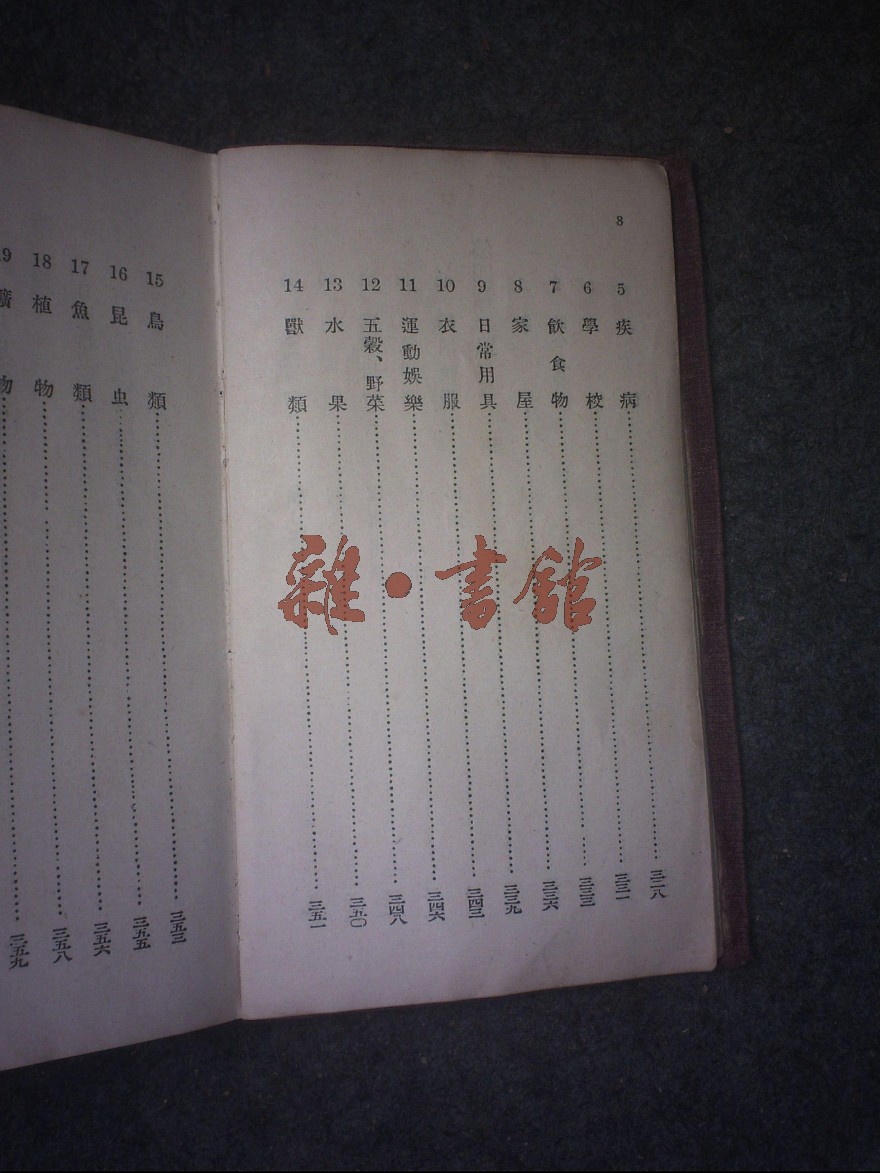 3
5 疾病……三二八
6 學校……三三一
7 飲食物……三三三
8 家屋……三三六
9 日常用具……三三九
10 衣服……三四三
11 運動娛樂……三四六
12 五穀、野菜……三四八
13 水果……三五〇
14 獸類……三五一
15 鳥類……三五三
16 昆虫……三五五
17 魚類……三五六
18 植物……三五八
19 礦物……三五九
雜·書館